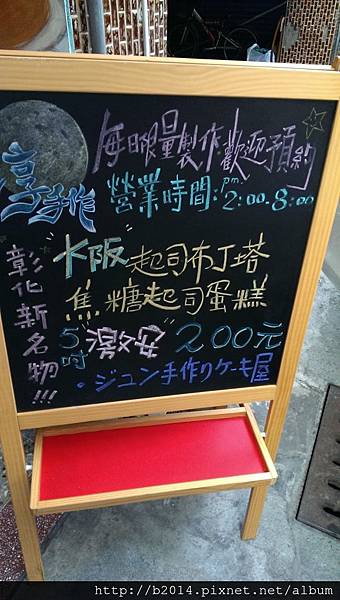 享手作
每日限量製作歡迎預約
營業時間:pm 2:00-8:00
彰化新名物!!!
"大阪"起司布丁塔
焦糖起司蛋糕
5吋"激安"200元
。ジュン手作りケーキ屋
http://b2014.pixnet.net/album